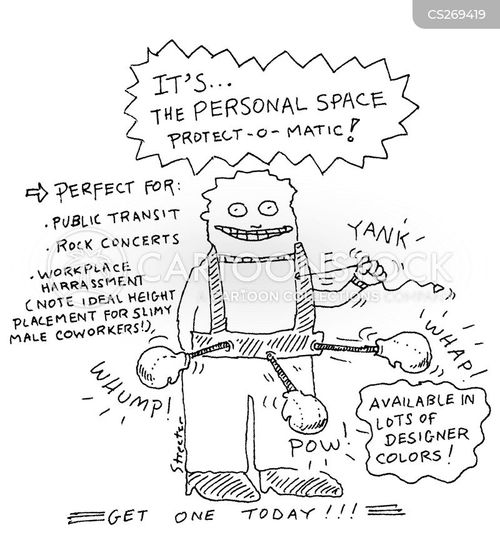 CS269419
IT'S...
THE PERSONAL SPACE
PROTECT-O-MATIC!
PERFECT FOR:
• PUBLIC TRANSIT
• ROCK CONCERTS
• WORKPLACE
HARRASSMENT
(NOTE IDEAL HEIGHT
PLACEMENT FOR SLIMY
MALE COWORKERS!)
YANK
CARTOONSTOCK
CARTOON COLLECTIONS COMPANY
WHAP!
WHUMP!
POW!
AVAILABLE IN
LOTS OF
DESIGNER
COLORS!
Streeter
GET ONE TODAY!!!